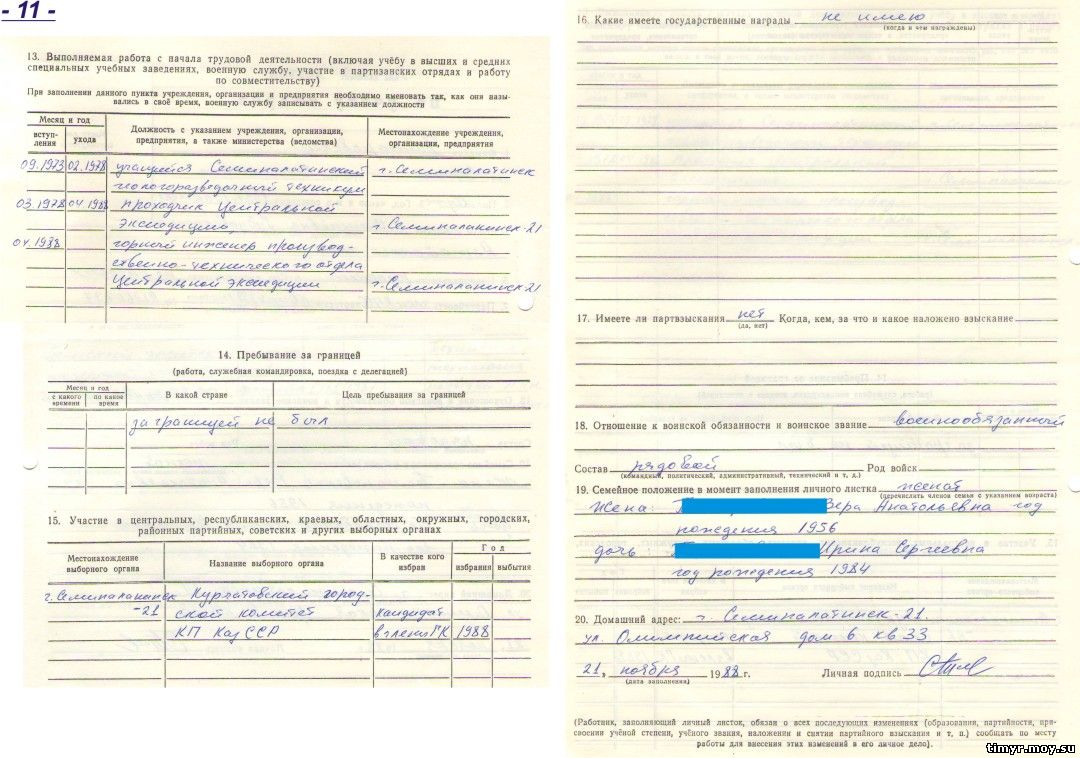 - 11 -
13. Выполняемая работа с начала трудовой деятельности (включая учёбу в высших и средних
специальных учебных заведениях, военную службу, участие в партизанских отрядах и работу
по совместительству)
При заполнении данного пункта учреждения, организации и предприятия необходимо именовать так, как они назы-
вались в своё время, военную службу записывать с указанием должности
Месяц и год
вступ-
ления
ухода
Должность с указанием учреждения, организации,
предприятия, а также министерства (ведомства)
Местонахождение учреждения,
организации, предприятия
09.1973 02.1978 учащийся Семипалатинский г. Семипалатинск
геологоразведочный техникум
03.1978 04.1988 проходчик Центральной
экспедиции, г. Семипалатинск-21
04.1988 горный инженер производ-
ственно-технического отдела
Центральной экспедиции г. Семипалатинск 21
14. Пребывание за границей
(работа, служебная командировка, поездка с делегацией)
Месяц и год
с какого
времени
по какое
время
В какой стране
Цель пребывания за границей
за границей не был
15. Участие в центральных, республиканских, краевых, областных, окружных, городских,
районных партийных, советских и других выборных органах
Местонахождение
выборного органа
Название выборного органа
В качестве кого
избран
Год
избрания
выбытия
г. Семипалатинск Курчатовский город-
-21 ской комитет кандидат
КП Каз ССР в члены ГК 1988
16. Какие имеете государственные награды не имею
(когда и чем награждены)
17. Имеете ли партвзыскания нет Когда, кем, за что и какое наложено взыскание
(да, нет)
18. Отношение к воинской обязанности и воинское звание военнообязанный
Состав рядовой Род войск
(командный, политический, административный, технический и т. д.)
19. Семейное положение в момент заполнения личного листка женат
(перечислить членов семьи с указанием возраста)
Жена: Вера Анатольевна год
рождения 1956
дочь: Ирина Сергеевна
год рождения 1984
20. Домашний адрес: г. Семипалатинск-21.
ул. Олимпийская дом 6 кв 33
21 „ ноября 1988 г. Личная подпись
(дата заполнения)
(Работник, заполняющий личный листок, обязан о всех последующих изменениях (образовании, партийности, при-
своении учёной степени, учёного звания, наложении и снятии партийного взыскания и т. п.) сообщать по месту
работы для внесения этих изменений в его личное дело).
timyr.moy.su